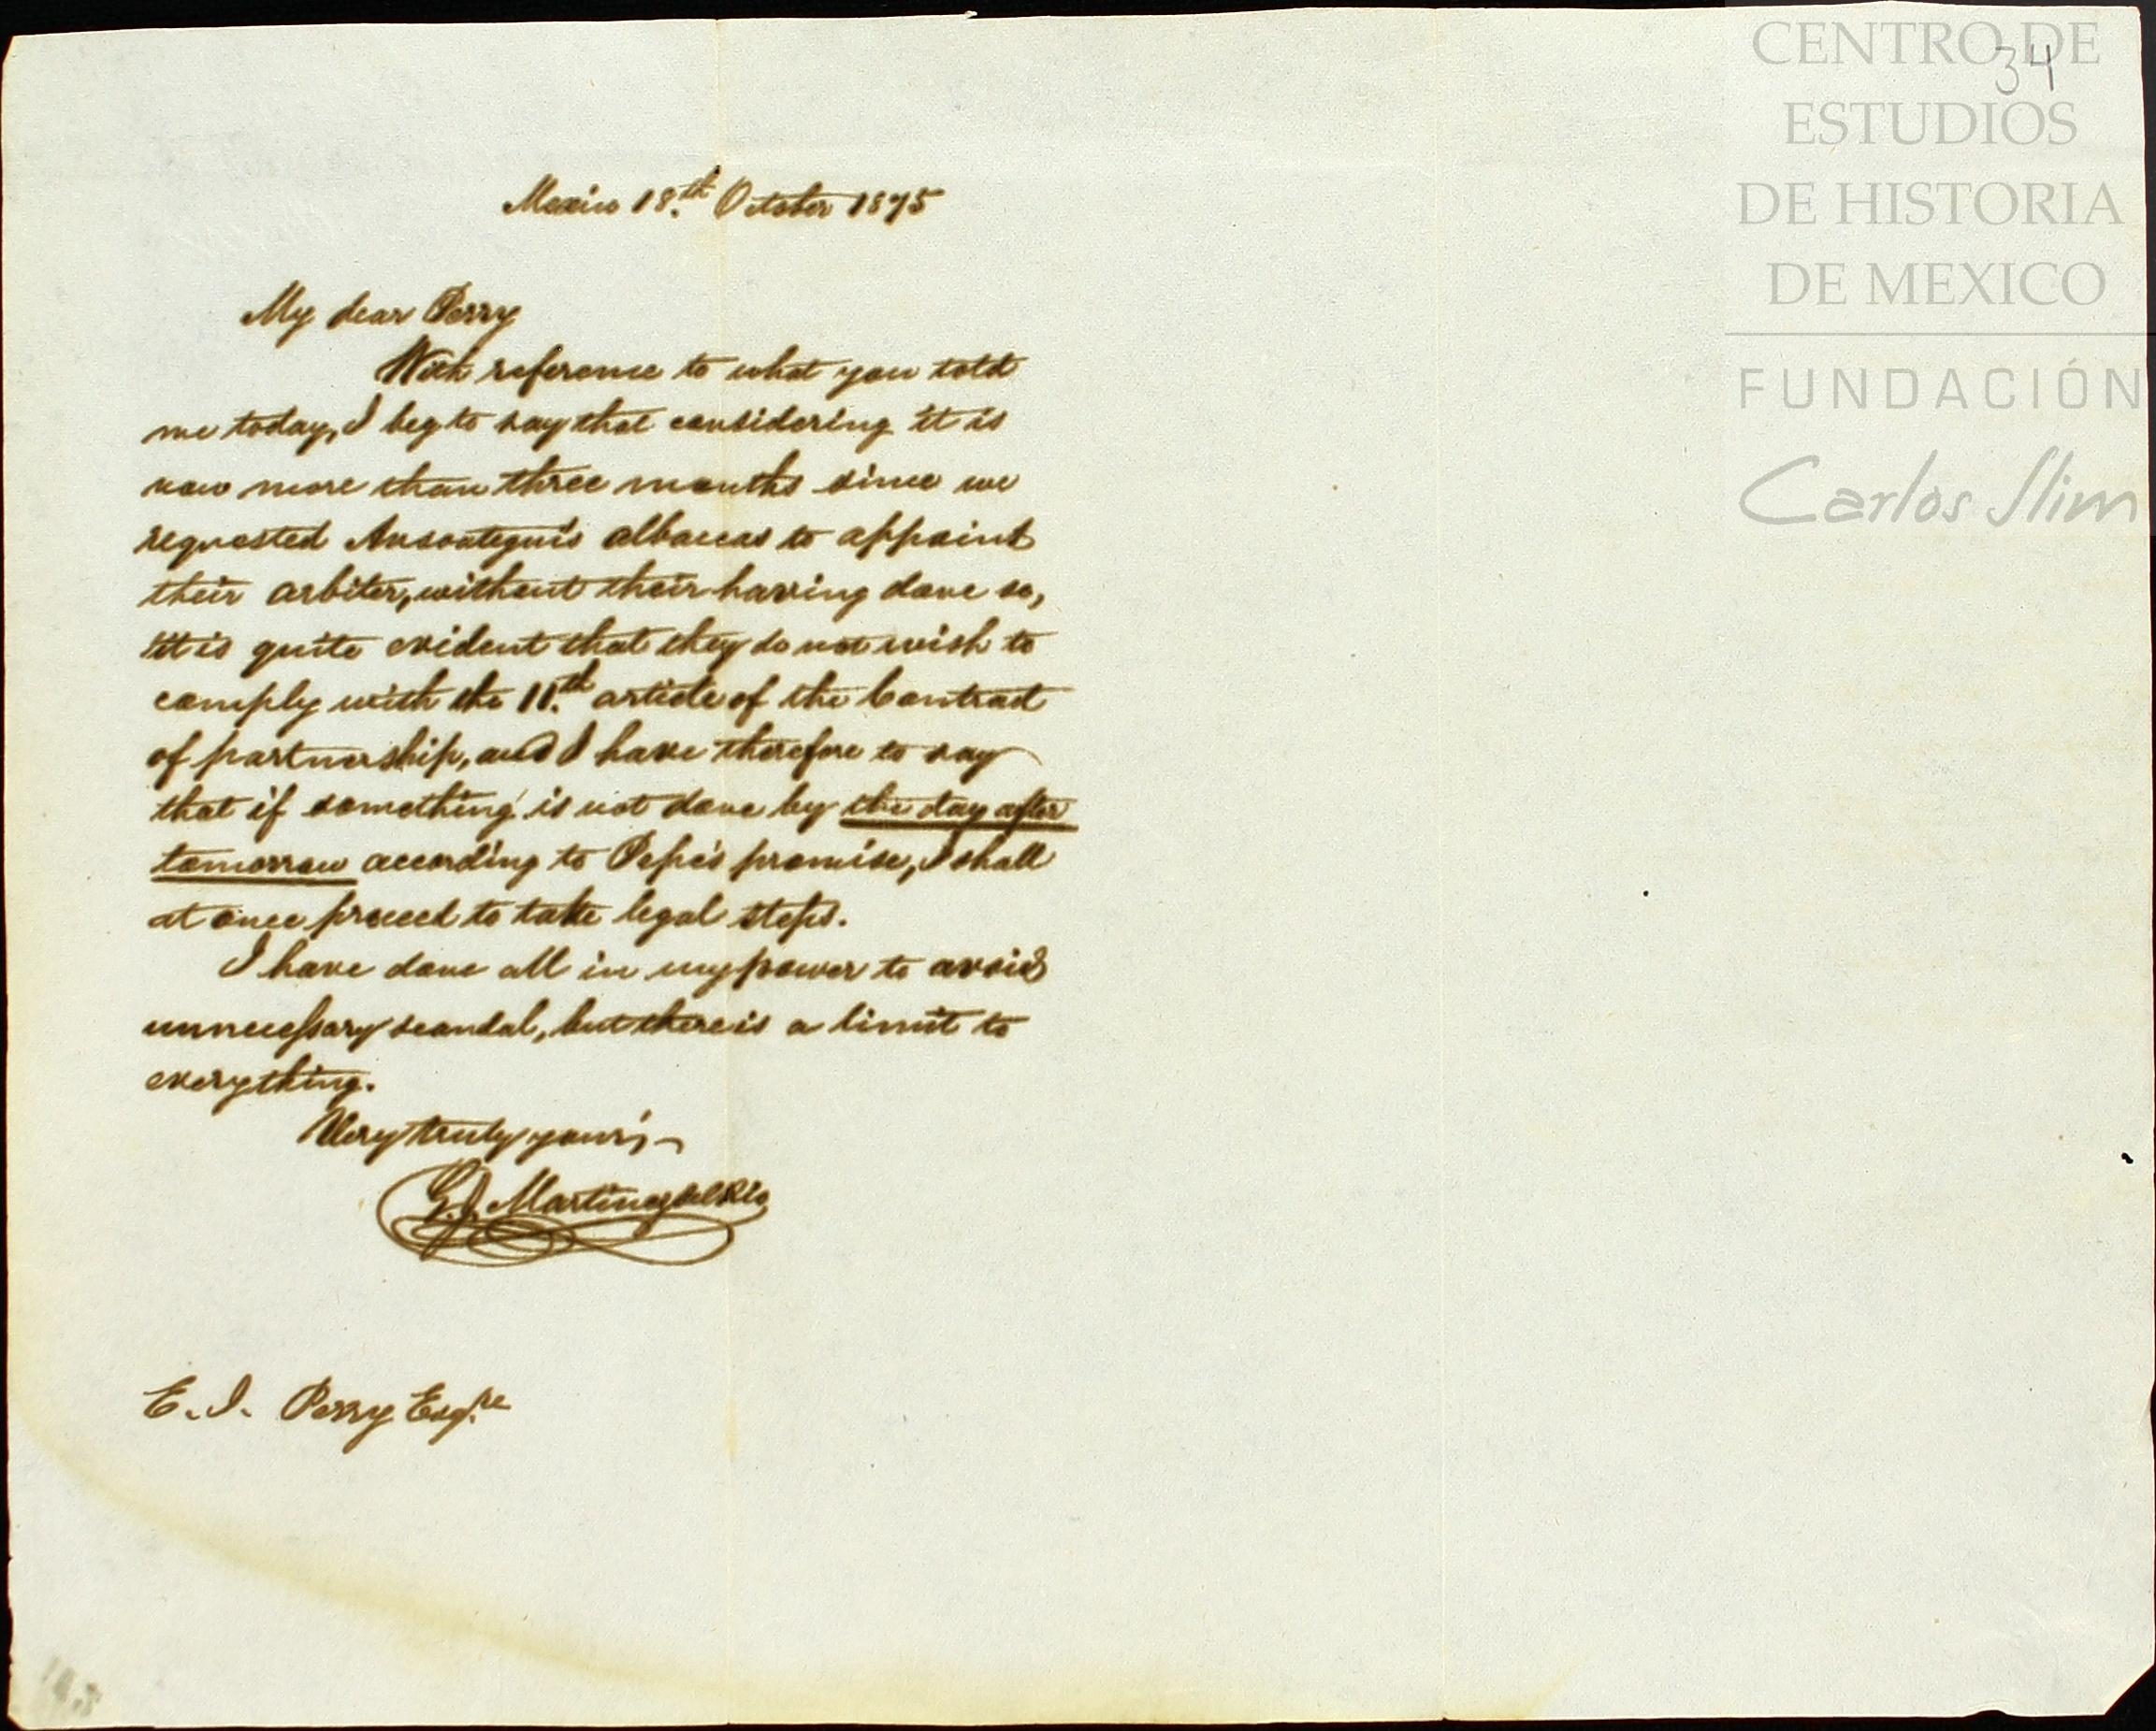 34
CENTRO DE
ESTUDIOS
DE HISTORIA
DE MEXICO
FUNDACIÓN
Carlos Slim
Mexico 18.th October 1875
My dear Perry
With reference to what you told
me today, I beg to say that considering it is
now more than three months since we
requested Ansoategui's albaceas to appoint
their arbiter, without their having done so,
it is quite evident that they do not wish to
comply with the 11.th article of the Contract
of partnership, and I have therefore to say
that if something is not done by the day after
tomorrow according to Pepe's promise, I shall
at once proceed to take legal steps.
I have done all in my power to avoid
unnecessary scandal, but there is a limit to
everything.
Very truly your's,
G. J. Martinez del Rio
E. J. Perry Esq.re